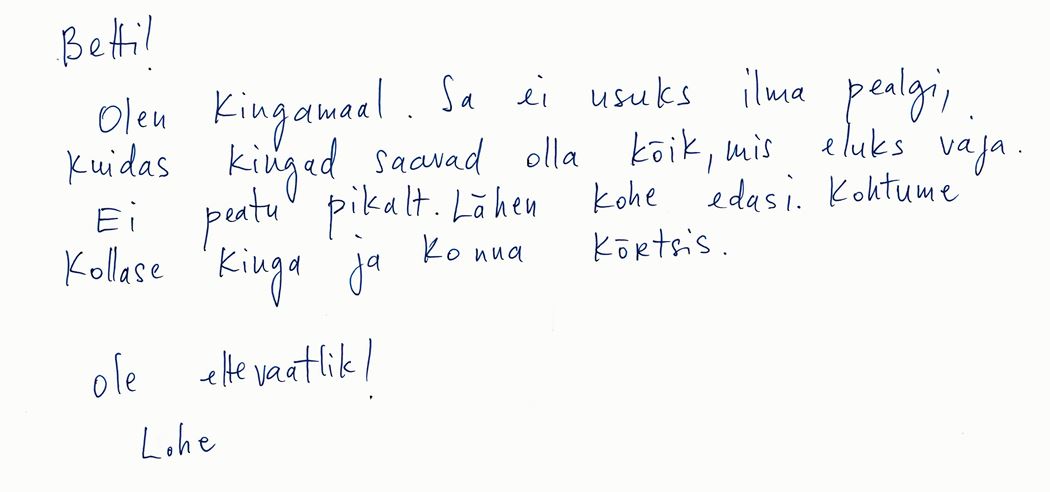 Betti!
Olen Kingamaal. Sa ei usuks ilma pealgi,
kuidas kingad saavad olla kõik, mis eluks vaja.
Ei peatu pikalt. Lähen kohe edasi. Kohtume
Kollase Kinga ja Konna kõrtsis.
ole ettevaatlik!
Lohe